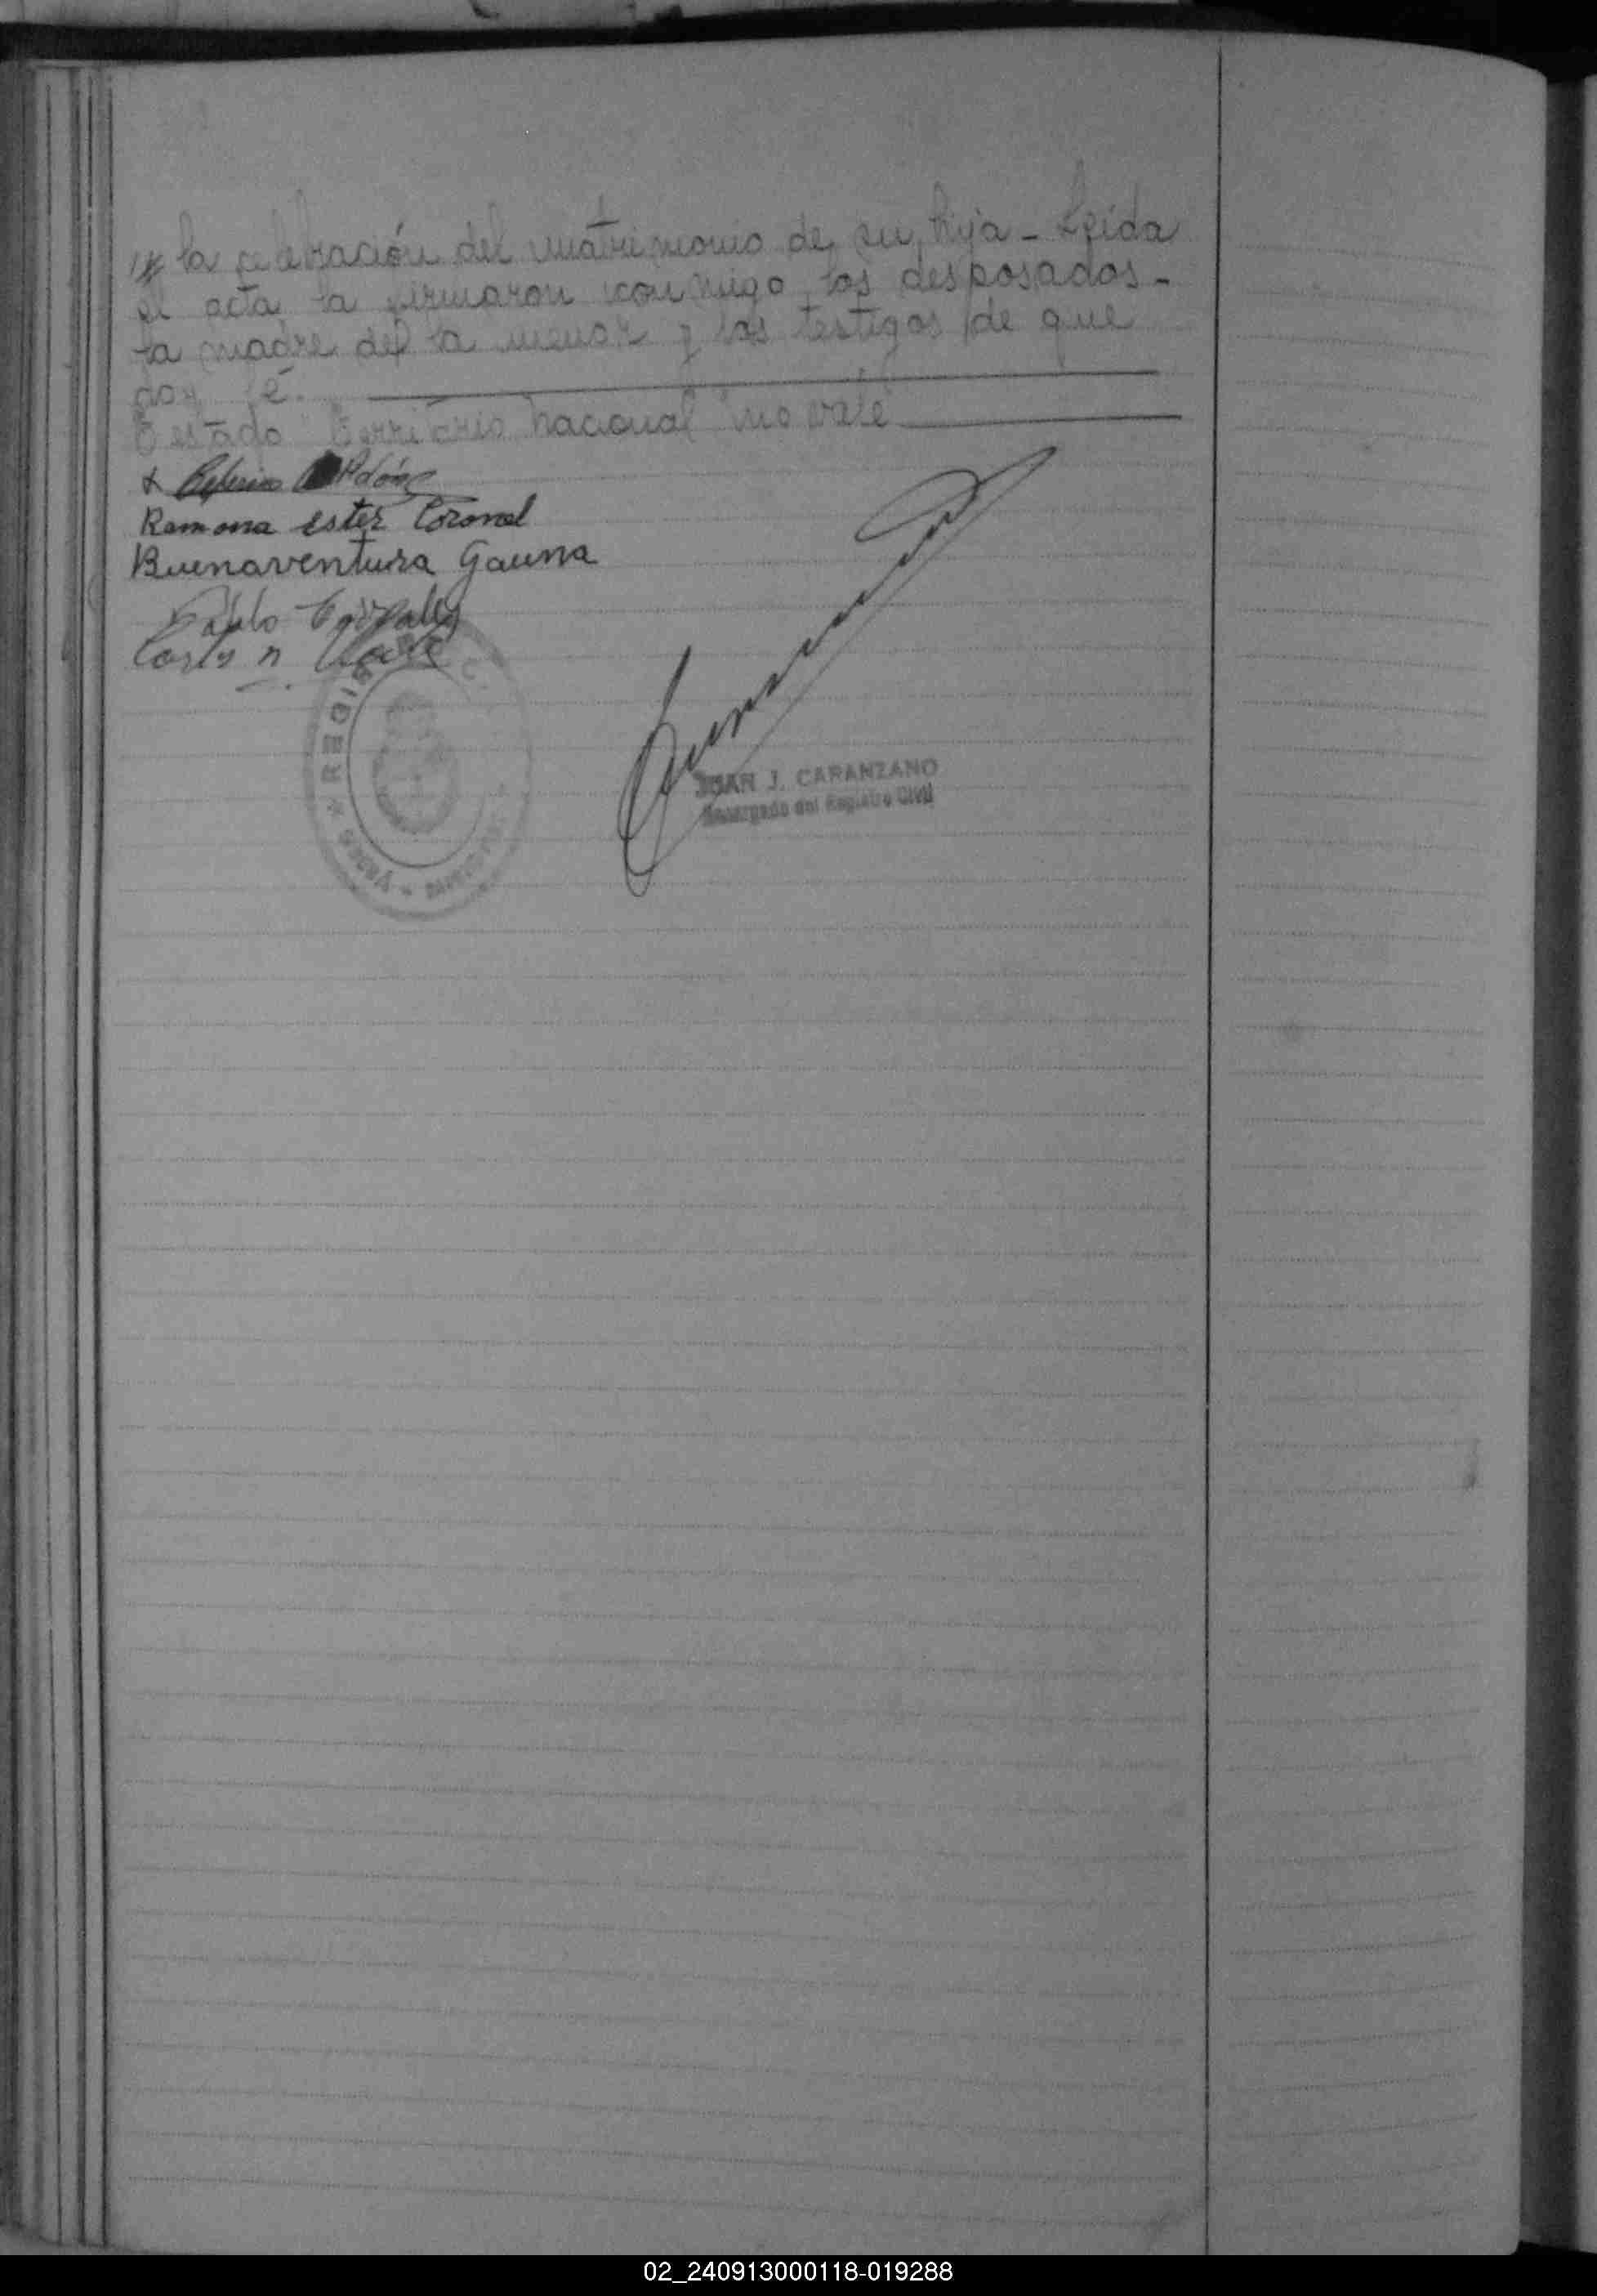 la celebración del matrimonio de su hija - Leida
el acta la firmaron conmigo los desposados -
la madre de la menor y los testigos de que
doy fé.
Testado Territorio Nacional "no vale"
Ramona ester Coronel
Buenaventura Gauna
Pablo
Carlos n.
REGISTRO C.
JUAN J. CARANZANO
Encargado del Registro Civil
02_240913000118-019288